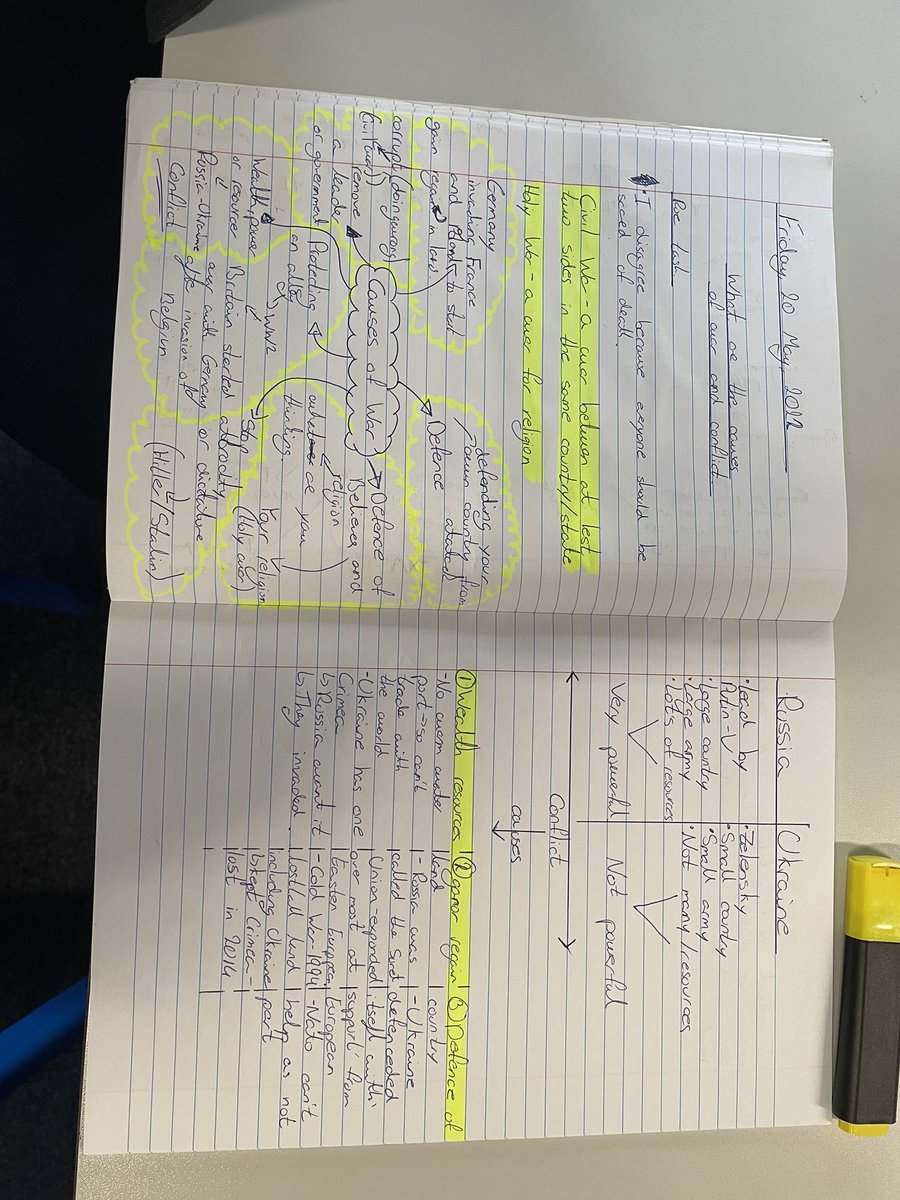 Friday, 20 May, 2022
What are the causes
of war and conflict
Pre task
• I disagree because everyone should be
scared of death.
Civil War - a war between at lest
two sides in the same country/state
Holy War - a war for religion
Germany
invading France
and Poland to start
gain regain in land.
corrupt doing wrong
(civil war)
remove
a leader
or government
Causes of War
Defence
defending your
own country from
atatcd
Defence of
Believes and
religion
what are your
thinking.
Your religion
(Holy war)
Protecting
an alley
Wealth, power
or resource
Russia-Ukraine
Conflict
Britain started
war with Germany
after invasion of
Belgium
Stop
attrocity
or dictature
(Hitler/Stalin)
Russia | Ukraine
• Lead by
Putin - V
• Large country
• Large army
• Lots of resources
• Zelensky
• Small country
• Small army
• Not many resources
Very powerful | Not powerful
Conflict
causes
① Wealth resources | ② gain or regain | ③ Defence of
land
country
- No warm water
port → so can't
trade with
the world
- Ukraine has one
Crimea
↳ Russia want it
↳ They invaded.
- Russia was
called the Soviet
Union - expanded
over most of
Easten European
- Cold War - 1994
lost all land
including Ukraine
↳ kept Crimea -
lost in 2014
- Ukraine
defenceded
itself with
support from
European
- Nato can't
help as not
part